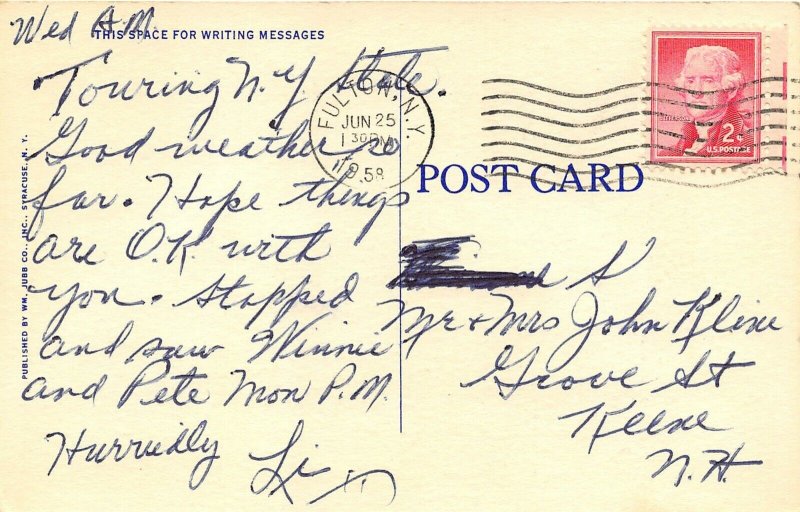 Wed A.M.
THIS SPACE FOR WRITING MESSAGES
Touring N.Y. State.
Good weather so
far. Hope things
are O.K. with
you. Stopped
and saw Winnie
and Pete Mon P.M.
Hurriedly
PUBLISHED BY WM. JUBB CO., INC., SYRACUSE, N. Y.
FULTON, N.Y.
JUN 25
1 30 PM
1958
JEFFERSON
2¢
U.S. POSTAGE
POST CARD
Mr & Mrs John Kline
Grove St
Keene
N.H.